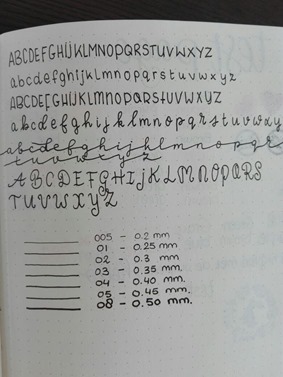 ABCDEFGHIJKLMNOPQRSTUVWXYZ
abcdefghijklmnopqrstuvwxyz
ABCDEFGHIJKLMNOPQRSTUVWXYZ
abcdefghijklmnopqrstuvwxy
abcdefghijklmnopqrs
tuvwxyz
ABCDEFGHIJKLMNOPQRS
TUVWXYZ
005 - 0.2 mm
01 - 0.25 mm
02 - 0.3 mm
03 - 0.35 mm.
04 - 0.40 mm.
05 - 0.45 mm.
08 - 0.50 mm.